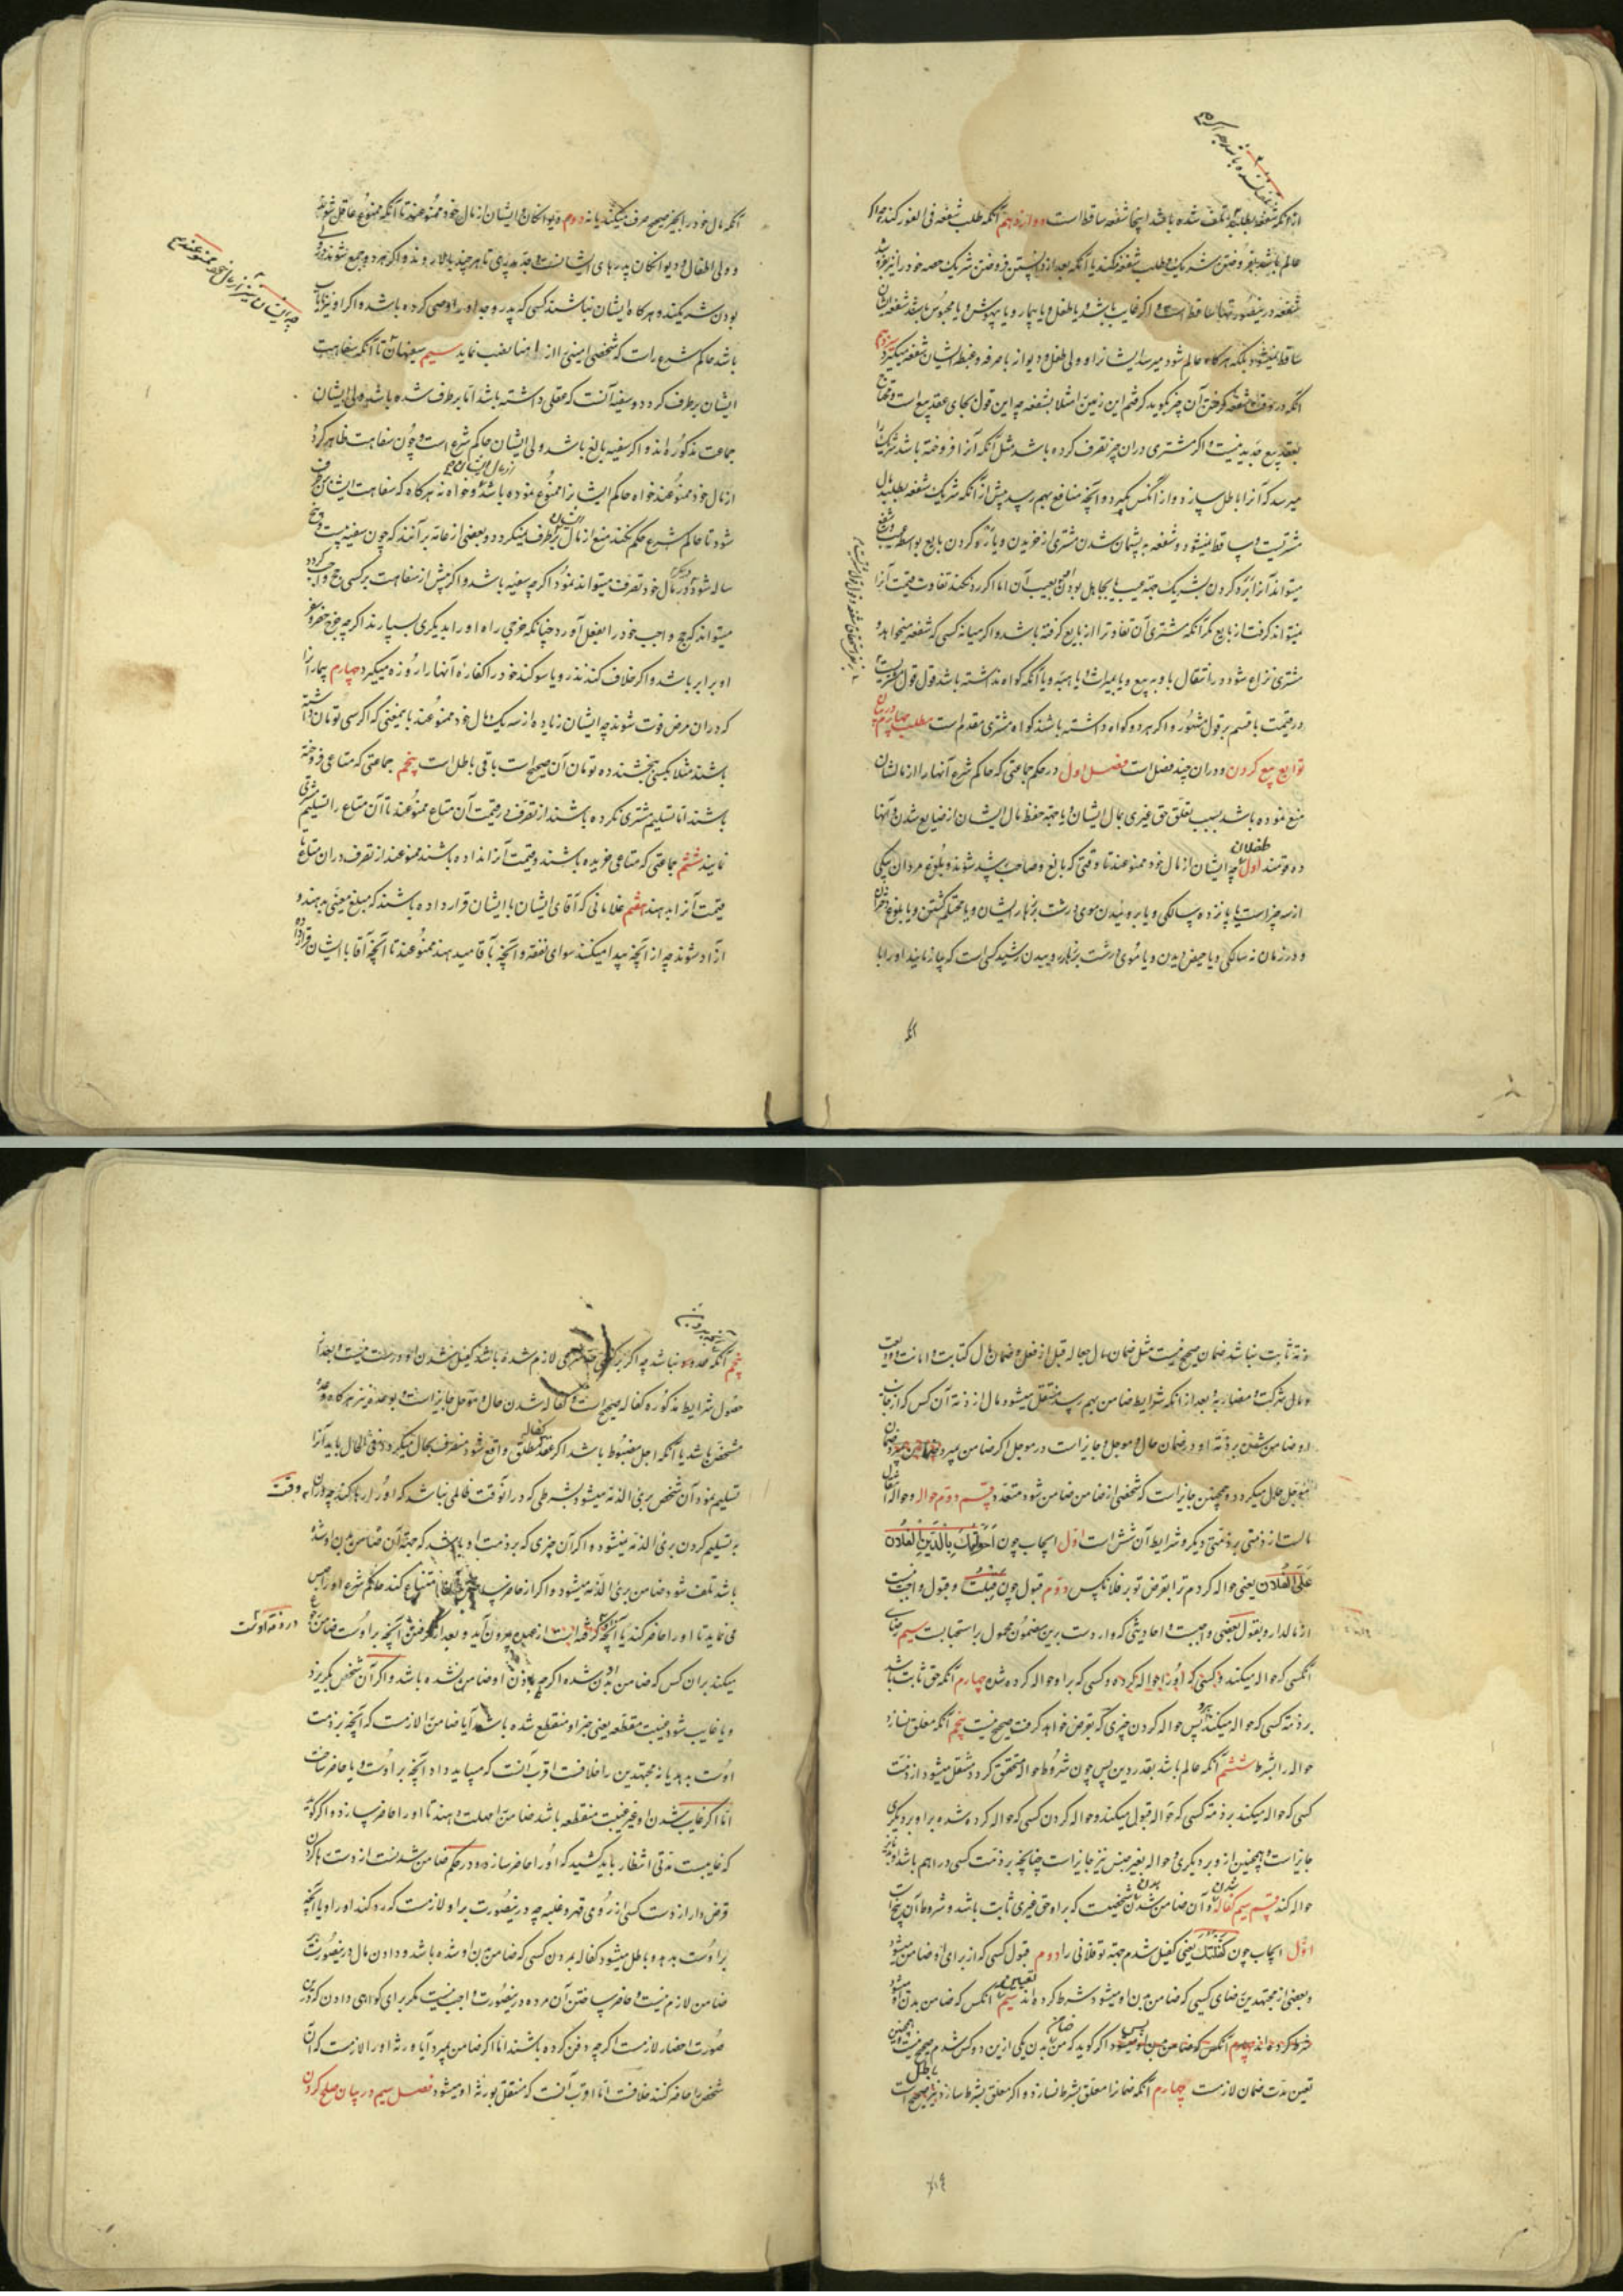 از آنکه شفعه بطلبد تلف شده باشد اینجا شفعه ساقط است دوازدهم آنکه طلب شفعه فی الفور کند چه اگر
عالم باشد بفروختن شریک و طلب شفعه نکند یا آنکه بعد از دانستن فروختن شریک حصه خود را نیز فروشد
شفعه درینصورتها ساقط است و اگر غایب باشد یا طفل و یا بیمار و یا بیهوش و یا محبوس باشد شفعه ایشان
ساقط نمیشود بلکه هرگاه عالم شود میرسد ایشانرا و ولی طفل و دیوانه با صرفه و غبطه ایشان شفعه میگیرد سیزدهم
آنکه در وقت شفعه گرفتن آن چیز بگوید گرفتم این زمین را مثلا بشفعه چه این قول بجای عقد بیع است و محتاج
بعقد بیع جدید نیست و اگر مشتری در ان چیز تصرف کرده باشد مثل آنکه آنرا فروخته باشد شریک را
میرسد که آنرا باطل سازد و از آنکس بگیرد و آنچه منافع بهم رسد پیش از آنکه شریک شفعه بطلبد مال
مشتریست و ساقط نمیشود شفعه به پشیمان شدن مشتری از خریدن و یا رد کردن بایع بواسطه عیب و شفیع
میتواند آنرا رد کردن بشریک جهة عیب با جاهل بودن بعیب آن اما اگر رد نکند تفاوت قیمت آنرا
نمیتواند گرفت از بایع مگر آنکه مشتری آن تفاوت را از بایع گرفته باشد و اگر میانه کسی که شفعه میخواهد و
مشتری نزاع شود در انتقال باو به بیع و یا بمیراث یا هبه و یا آنکه گواه نداشته باشد قول قول مشتریست
در قیمت با قسم بر قول مشهور و اگر هر دو گواه داشته باشند گواه مشتری مقدم است مطلب چهارم در بیان
توابع بیع کردن و دران چند فصل است فصل اول در حکم جماعتی که حاکم شرع آنها را از مالشان
منع نموده باشد بسبب تعلق حق غیری بمال ایشان و یا جهة حفظ مال ایشان از ضایع شدن و آنها
ده قومند اول طفلان چه ایشان از مال خود ممنوعند تا وقتی که بالغ و صاحب رشد شوند و بلوغ مردان بیکی
از سه چیز است یا پانزده سالگی و یا بروئیدن موی درشت بزهار ایشان و یا محتلم گشتن و یا بلوغ دختران
و در زنان نه سالگی و یا حیض دیدن و یا موی درشت بزهار روییدن و رشید کسی است که نیازمایند او را با
آنکه مال خود را بچیز صحیح صرف میکند یا نه دوم دیوانگان و ایشان از مال خود ممنوعند تا آنکه ممنوع عاقل شوند
و ولی اطفال و دیوانگان پدرهای ایشانست و جد پدری تا هر چند بالا روند و اگر هر دو جمع شوند در ولی
بودن شریکند و هرگاه ایشان نباشند کسی که پدر و جد او را وصی کرده باشد و اگر او نیز نایاب
باشد حاکم شرع راست که شخصی امینی را از برای اینها نصب نماید سیم سفیهان تا آنکه سفاهت
ایشان برطرف گردد و سفیه آنست که عقلی داشته باشد اما برطرف شده باشد و ولی ایشان
جماعت مذکوره‌اند و اگر سفیه بالغ باشد ولی ایشان حاکم شرع است و چون سفاهت ظاهر گردد
از مال خود ممنوعند خواه حاکم ایشانرا ممنوع نموده باشد و خواه نه هرگاه که سفاهت ایشان برطرف
شود تا حاکم شرع حکم نکند منع از مال برطرف نمیگردد و بعضی از عامه بر آنند که چون سفیه بیست و پنج
ساله شود در مال خود تصرف میتواند نمود اگر چه سفیه باشد و اگر پیش از سفاهت بر کسی حج واجب گردد
میتواند که حج واجب خود را بفعل آورد چنانکه خرجی راه او را بدیگری بسپارند اگر چه خرج حضر و سفر
او برابر باشد و اگر خلاف کند نذر و یا سوگند خود را کفاره آنها را روزه میگیرد چهارم بیمارانرا
که دران مرض فوت شوند چه ایشان زیاده از سه یک مال خود ممنوعند باینمعنی که اگر سی تومان داشته
باشند مثلا بکسی بخشند ده تومان آن صحیح است باقی باطل است پنجم جماعتی که متاعی فروخته
باشند اما تسلیم مشتری نکرده باشند از تصرف در قیمت آن متاع ممنوعند تا آن متاع را تسلیم مشتری
نمایند ششم جماعتی که متاعی خریده باشند و قیمت آنرا نداده باشند ممنوعند از تصرف دران متاع تا
قیمت آنرا بدهند هفتم غلامانی که آقای ایشان با ایشان قرار داده باشند که مبلغ معینی بدهند و
آزاد شوند چه از آنچه پیدا میکنند سوای نفقه و آنچه بآقا میدهند ممنوعند تا آنچه آقا با ایشان قرار داده
چه ایشان نیز از مال خود ممنوعند
ذمه ثابت نباشد ضمان صحیح نیست مثل ضمان مال جعاله قبل از فعل و ضمان مال کتابت و امانت و ودیعت
و مال شرکت و مضاربه و بعد از آنکه شرایط ضامن بهم رسید منتقل میشود مال از ذمه آن کس که از جانب
او ضامن شدن بر ذمه او و در ضمان حال و موجل جایز است و در موجل اگر ضامن بمیرد
موجل حال میگردد و همچنین جایز است که شخصی از ضامن ضامن شود متعدد قسم دوم حواله و حواله انتقال
مالست از ذمتی بر ذمتی دیگر و شرایط آن شش است اول ایجاب چون احلتک بالدین لفلان
علی الفلان یعنی حواله کردم ترا بقرض تو بر فلانکس دوم قبول چون قبلت و قبول واجب نیست
از مالدار و بقول بعضی واجبست و احادیثی که واردست برین مضمون محمول بر استحبابست سیم رضای
آنکس که حواله میکند و کسی که او را حواله کرده و کسی که برا و حواله کرده شده چهارم آنکه حق ثابت باشد
بر ذمه کسی که حواله میکند پس حواله کردن چیزی که بقرض خواهد گرفت صحیح نیست پنجم آنکه معلق نسازد
حواله را بشرط ششم آنکه عالم باشد بقدر دین پس چون شروط حواله متحقق گردد منتقل میشود از ذمت
کسی که حواله میکند بر ذمه کسی که حواله قبول میکند و حواله کردن کسی که حواله کرده شده بر او بر دیگری
جایز است و همچنین از و بر دیگری و حواله بغیر جنس نیز جایز است چنانچه بر ذمت کسی دراهم باشد
حواله کند قسم سیم کفاله و آن ضامن شدن بدن شخصیست که برا و حق غیری ثابت باشد و شروط آن پنج است
اول ایجاب چون کفلتک یعنی کفیل شدم جهة تو فلانی را دوم قبول کسی که از برای او ضامن میشود
و بعضی از مجتهدین رضای کسی که ضامن بدن او میشود شرط کرده‌اند سیم تعیین آنکس که ضامن بدن او میشود
شرط کرده‌اند چهارم آنکس که ضامن بدن او میشود پس اگر گوید که من ضامن بدن یکی ازین دو کس شدم صحیح نیست و همچنین
تعین مدت ضمان لازمست چهارم آنکه ضمانرا معلق بشرط نسازد و اگر معلق بشرط سازد باطل است
پنجم آنکه نباشد چه اگر بر کسی حدی لازم شده باشد کفیل شدن او درست نیست و بعد از
حصول شرایط مذکوره کفاله صحیح است و کفاله شدن حال و موجل جایز است و بوعده نیز هرگاه وعده
مشخص باشد یا آنکه اجل مضبوط باشد اگر عقد کفاله مطلق واقع شود منصرف بحال میگردد و فی الحال باید آنرا
تسلیم نمود و آن شخص بری الذمه میشود بشرطی که در آنوقت ظالمی نباشد که او را رها کند چه دران وقت
به تسلیم کردن بری الذمه نمیشود و اگر آن چیزی که بر ذمت او باشد که جهة آن ضامن بدن او شده
باشد تلف شود ضامن بری الذمه میشود و اگر از حاضر ساختن امتناع کند حاکم شرع او را حبس
می نماید تا او را حاضر کند یا آنچه بر ذمه اوست از عهده بیرون آید و بعد از گرفتن آنچه بر اوست ضامن رجوع
میکند بران کس که ضامن بدن او شده اگر چه باذن او ضامن نشده باشد و اگر آن شخص بگریزد
و یا غایب شود غیبت منقطعه یعنی خبر او منقطع شده باشد آیا ضامن را لازمست که آنچه بر ذمت
اوست بدهد یا نه مجتهدین را خلافست اقرب آنست که میباید داد آنچه بر اوست و یا حاضر ساخت
اما اگر غایب شدن او غیر غیبت منقطعه باشد ضامن را مهلت دهند تا او را حاضر سازد و اگر گوید
که غایبست مدتی انتظار باید کشید که او را حاضر سازد و در حکم ضامن شدنست از دست رها کردن
قرض دار از دست کسی از روی قهر و غلبه چه درینصورت بر او لازمست که رد کند او را و یا آنچه
بر اوست بدهد و باطل میشود کفاله بمردن کسی که ضامن بدن او شده باشد و دادن مال درینصورت بر
ضامن لازم نیست و حاضر ساختن آن مرده درینصورت واجب نیست مگر برای گواهی دادن که درین
صورت احضار لازمست اگر چه دفن کرده باشند اما اگر ضامن بمیرد آیا ورثه او را لازمست که آن
شخص را حاضر کنند خلافست اما اقرب آنست که منتقل بورثه او میشود فصل سیم در بیان صلح کردن
در ذمه اوست